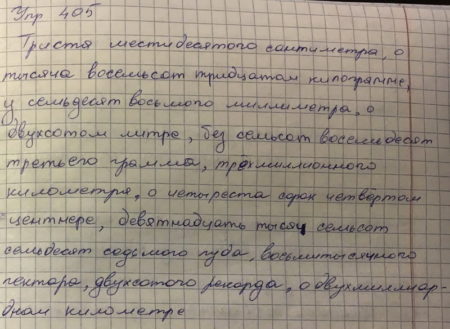 Упр 405
Триста шестидесятого сантиметра, о
тысяча восемьсот тридцатом килограмме,
у семьдесят восьмого миллиметра, о
двухсотом литре, без семьсот восемьдесят
третьего грамма, трехмиллионного
километра, о четыреста сорок четвёртом
центнере, девятнадцать тысяч семьсот
семьдесят седьмого пуда, восьмитысячного
гектара, двухсотого рекорда, о двухмиллиар-
дном километре